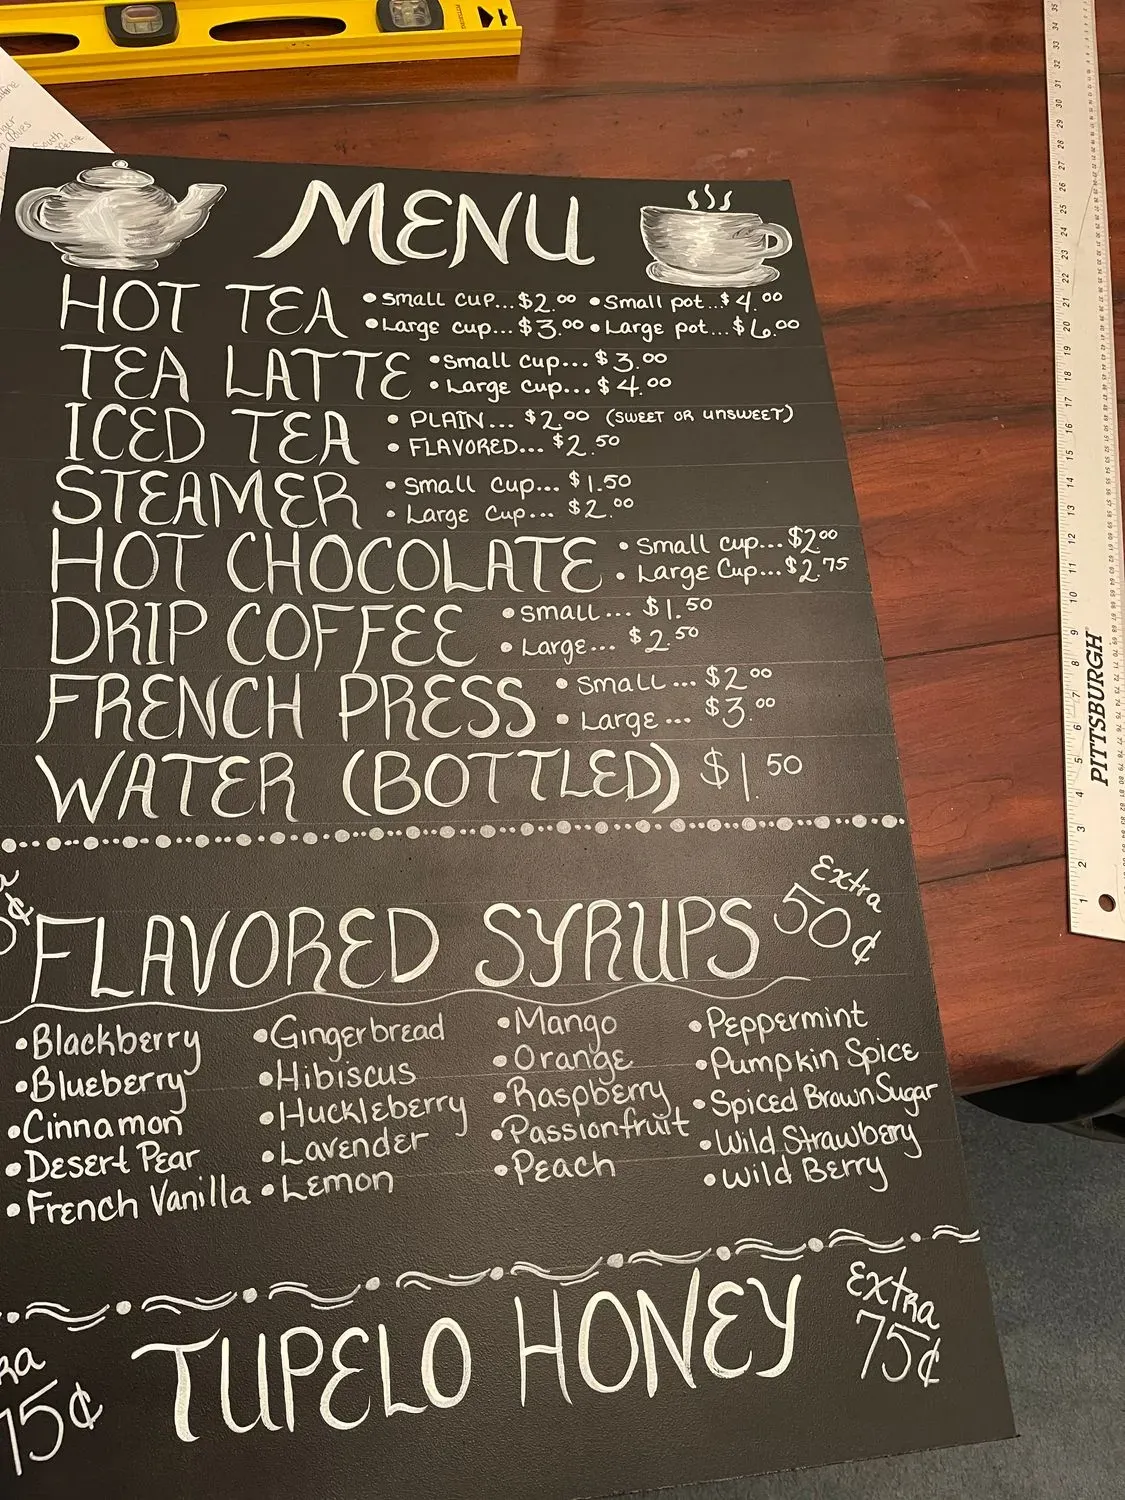 MENU
HOT TEA
• Small cup...$2.00 • Small pot...$4.00
• Large cup...$3.00 • Large pot...$6.00
TEA LATTE
• Small cup...$3.00
• Large cup...$4.00
ICED TEA
• PLAIN...$2.00 (SWEET OR UNSWEET)
• FLAVORED...$2.50
STEAMER
• Small cup...$1.50
• Large cup...$2.00
HOT CHOCOLATE
• Small cup...$2.00
• Large Cup...$2.75
DRIP COFFEE
• Small...$1.50
• Large...$2.50
FRENCH PRESS
• Small...$2.00
• Large...$3.00
WATER (BOTTLED) $1.50
FLAVORED SYRUPS
Extra
50¢
• Blackberry
• Blueberry
• Cinnamon
• Desert Pear
• French Vanilla
• Gingerbread
• Hibiscus
• Huckleberry
• Lavender
• Lemon
• Mango
• Orange
• Raspberry
• Passionfruit
• Peach
• Peppermint
• Pumpkin Spice
• Spiced Brown Sugar
• Wild Strawberry
• Wild Berry
TUPELO HONEY
Extra
75¢
75¢
PITTSBURGH
South